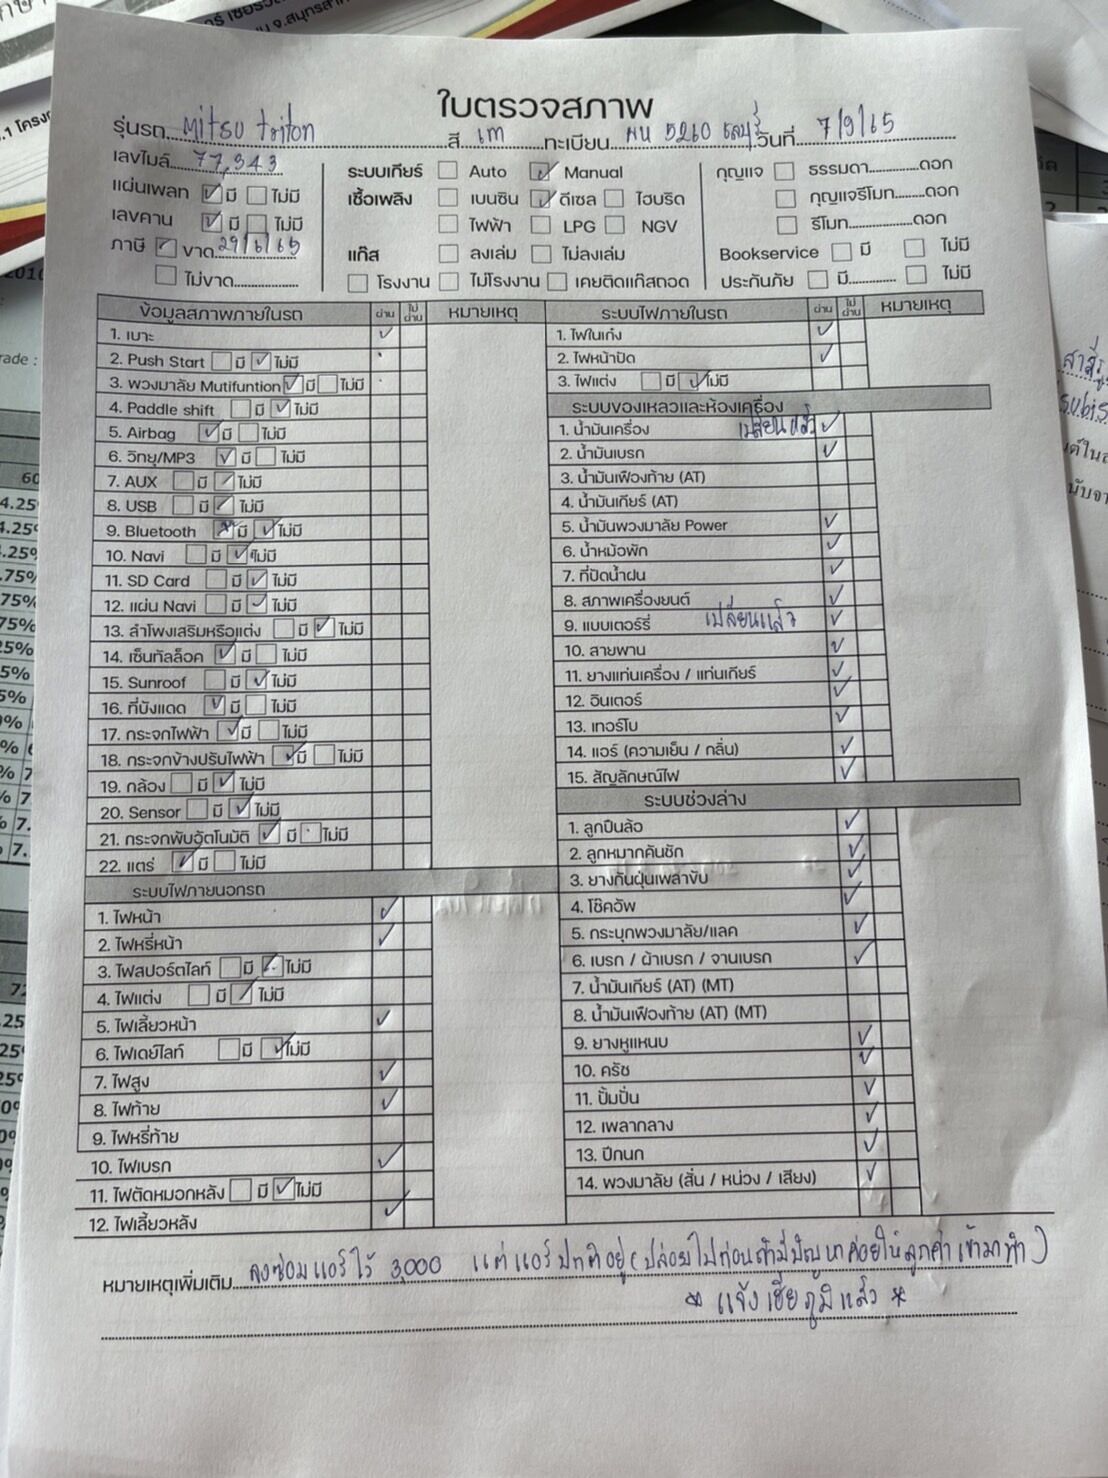 ใบตรวจสภาพ
รุ่นรถ Mitsu triton สี เทา ทะเบียน ผน 5260 ชลบุรี วันที่ 7/9/65
เลขไมล์ 77,343 ระบบเกียร์ Auto Manual กุญแจ ธรรมดา ดอก
แผ่นเพลท มี ไม่มี เชื้อเพลิง เบนซิน ดีเซล ไฮบริด กุญแจรีโมท ดอก
เลขคาน มี ไม่มี ไฟฟ้า LPG NGV รีโมท ดอก
ภาษี ขาด 29/6/65 แก๊ส ลงเล่ม ไม่ลงเล่ม Bookservice มี ไม่มี
ไม่ขาด โรงงาน ไม่โรงงาน เคยติดแก๊สถอด ประกันภัย มี ไม่มี
ข้อมูลสภาพภายในรถ ผ่าน ไม่ผ่าน หมายเหตุ
1. เบาะ
2. Push Start มี ไม่มี
3. พวงมาลัย Mutifuntion มี ไม่มี
4. Paddle shift มี ไม่มี
5. Airbag มี ไม่มี
6. วิทยุ/MP3 มี ไม่มี
7. AUX มี ไม่มี
8. USB มี ไม่มี
9. Bluetooth มี ไม่มี
10. Navi มี ไม่มี
11. SD Card มี ไม่มี
12. แผ่น Navi มี ไม่มี
13. ลำโพงเสริมหรือแต่ง มี ไม่มี
14. เซ็นทัลล็อค มี ไม่มี
15. Sunroof มี ไม่มี
16. ที่บังแดด มี ไม่มี
17. กระจกไฟฟ้า มี ไม่มี
18. กระจกข้างปรับไฟฟ้า มี ไม่มี
19. กล้อง มี ไม่มี
20. Sensor มี ไม่มี
21. กระจกพับอัตโนมัติ มี ไม่มี
22. แตร่ มี ไม่มี
ระบบไฟภายนอกรถ
1. ไฟหน้า
2. ไฟหรี่หน้า
3. ไฟสปอร์ตไลท์ มี ไม่มี
4. ไฟแต่ง มี ไม่มี
5. ไฟเลี้ยวหน้า
6. ไฟเดย์ไลท์ มี ไม่มี
7. ไฟสูง
8. ไฟท้าย
9. ไฟหรี่ท้าย
10. ไฟเบรก
11. ไฟตัดหมอกหลัง มี ไม่มี
12. ไฟเลี้ยวหลัง
ระบบไฟภายในรถ ผ่าน ไม่ผ่าน หมายเหตุ
1. ไฟในเก๋ง
2. ไฟหน้าปัด
3. ไฟแต่ง มี ไม่มี
ระบบของเหลวและห้องเครื่อง
1. น้ำมันเครื่อง เปลี่ยนแล้ว
2. น้ำมันเบรก
3. น้ำมันเฟืองท้าย (AT)
4. น้ำมันเกียร์ (AT)
5. น้ำมันพวงมาลัย Power
6. น้ำหม้อพัก
7. ที่ปัดน้ำฝน
8. สภาพเครื่องยนต์
9. แบบเตอร์รี่ เปลี่ยนแล้ว
10. สายพาน
11. ยางแท่นเครื่อง / แท่นเกียร์
12. อินเตอร์
13. เทอร์โบ
14. แอร์ (ความเย็น / กลิ่น)
15. สัญลักษณ์ไฟ
ระบบช่วงล่าง
1. ลูกปืนล้อ
2. ลูกหมากคันชัก
3. ยางกันฝุ่นเพลาขับ
4. โช๊คอัพ
5. กระบุกพวงมาลัย/แลค
6. เบรก / ผ้าเบรก / จานเบรก
7. น้ำมันเกียร์ (AT) (MT)
8. น้ำมันเฟืองท้าย (AT) (MT)
9. ยางหูแหนบ
10. ครัช
11. ปั้มปั่น
12. เพลากลาง
13. ปีกนก
14. พวงมาลัย (สั่น / หน่วง / เสียง)
หมายเหตุเพิ่มเติม ลงซ่อมแอร์ไว้ 3,000 แต่แอร์ปกติอยู่ (ปล่อยไปก่อนถ้ามีปัญหาค่อยให้ลูกค้าเข้ามาทำ)
* แจ้งเฮียภูมิแล้ว *